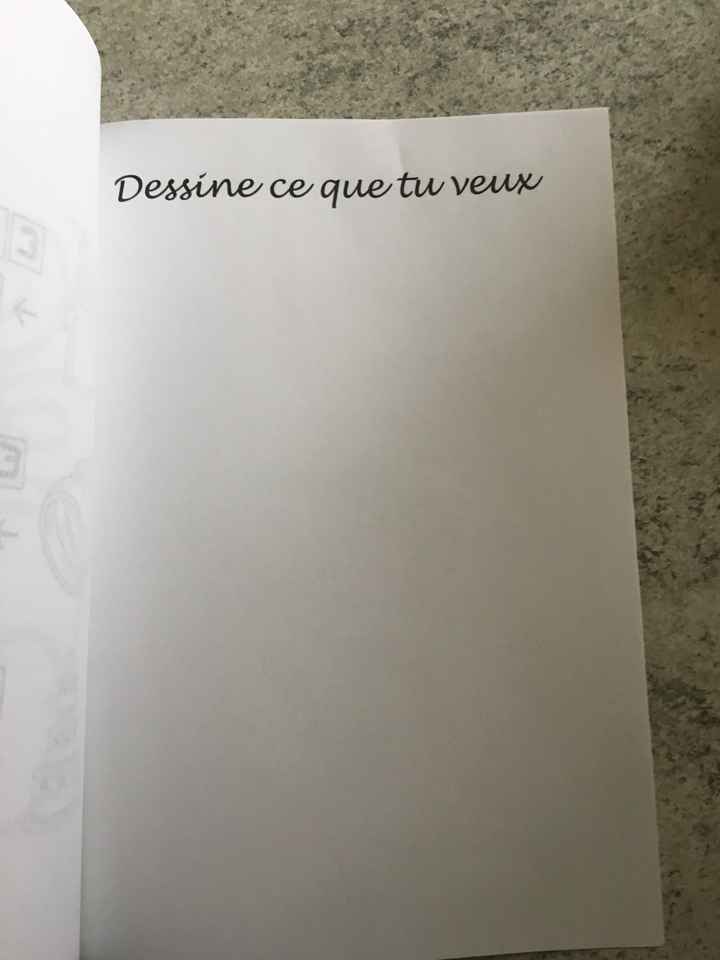 Dessine ce que tu veux